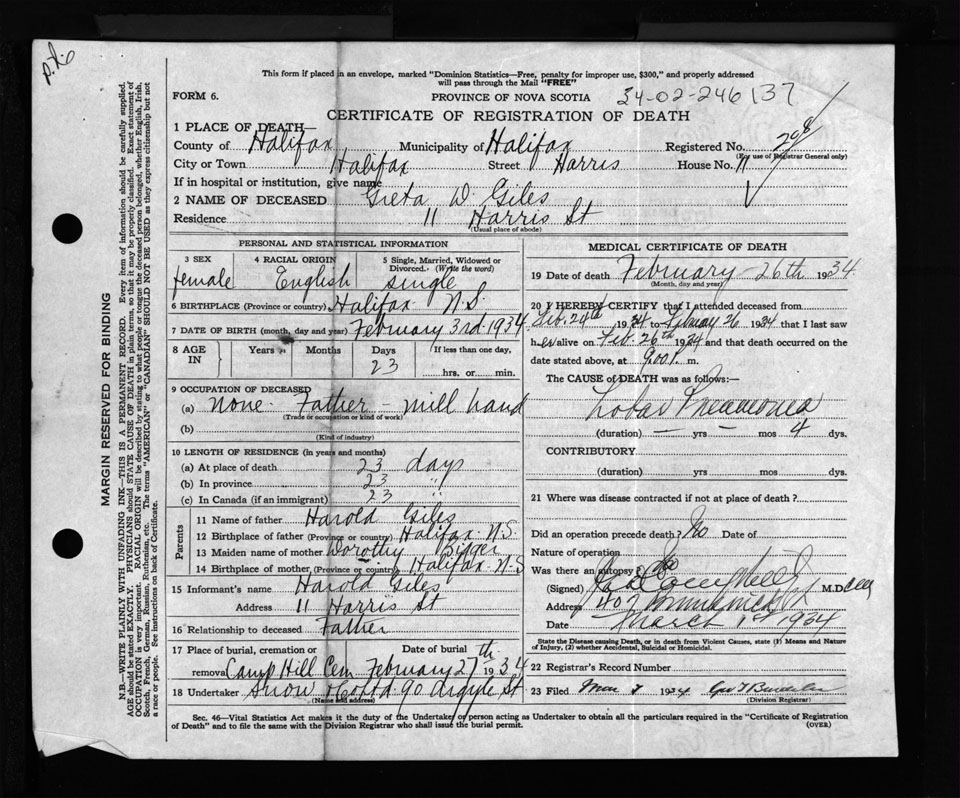 p.d.6
This form if placed in an envelope, marked "Dominion Statistics—Free, penalty for improper use, $300," and properly addressed
will pass through the Mail "FREE"
FORM 6.
PROVINCE OF NOVA SCOTIA
34-02-246137
CERTIFICATE OF REGISTRATION OF DEATH
1 PLACE OF DEATH—
County of Halifax Municipality of Halifax Registered No. 208
(For use of Registrar General only)
City or Town Halifax Street Harris House No. 11
If in hospital or institution, give name
2 NAME OF DECEASED Greta W Giles
Residence 11 Harris St
(Usual place of abode)
PERSONAL AND STATISTICAL INFORMATION
3 SEX female
4 RACIAL ORIGIN English
5 Single, Married, Widowed or Divorced. (Write the word) single
6 BIRTHPLACE (Province or country) Halifax N.S.
7 DATE OF BIRTH (month, day and year) February 3rd 1934
8 AGE IN Years Months Days 23 If less than one day, hrs. or min.
9 OCCUPATION OF DECEASED
(a) None. Father - mill hand
(Trade or occupation or kind of work)
(b)
(Kind of industry)
10 LENGTH OF RESIDENCE (in years and months)
(a) At place of death 23 days
(b) In province 23 "
(c) In Canada (if an immigrant) 23 "
Parents
11 Name of father Harold Giles
12 Birthplace of father (Province or country) Halifax N.S.
13 Maiden name of mother Dorothy
14 Birthplace of mother (Province or country) Halifax N-S
15 Informant's name Harold Giles
Address 11 Harris St
16 Relationship to deceased Father
17 Place of burial, cremation or Date of burial
removal Camp Hill Cem February 27th 1934
18 Undertaker Snow & Co Ltd 90 Argyle St
(Name and address)
MEDICAL CERTIFICATE OF DEATH
19 Date of death February 26th 1934
(Month, day and year)
20 I HEREBY CERTIFY that I attended deceased from
Feb. 24th 1934 to February 26 1934 that I last saw
h er alive on Feb. 26th 1934 and that death occurred on the
date stated above, at m.
The CAUSE of DEATH was as follows:—
Lobar Pneumonia
(duration) — yrs — mos 4 dys.
CONTRIBUTORY
(duration) yrs mos dys.
21 Where was disease contracted if not at place of death?
Did an operation precede death? No Date of
Nature of operation
Was there an autopsy?
(Signed) M.D.
Address 407 Brunswick St
Date March 1st 1934
State the Disease causing Death, or in death from Violent Causes, state (1) Means and Nature
of Injury, (2) whether Accidental, Suicidal or Homicidal.
22 Registrar's Record Number
23 Filed Mar 7 1934
(Division Registrar)
Sec. 46—Vital Statistics Act makes it the duty of the Undertaker or person acting as Undertaker to obtain all the particulars required in the "Certificate of Registration
of Death" and to file the same with the Division Registrar who shall issue the burial permit.
(OVER)
MARGIN RESERVED FOR BINDING
N.B.—WRITE PLAINLY WITH UNFADING INK—THIS IS A PERMANENT RECORD. Every item of information should be carefully supplied.
AGE should be stated EXACTLY. PHYSICIANS should STATE CAUSE OF DEATH in plain terms, so that it may be properly classified. Exact statement of
OCCUPATION is very important. RACIAL ORIGIN will be described by stating to what people or tongue the deceased person belonged, whether English, Irish,
Scotch, French, German, Russian, Ruthenian, etc. The terms "AMERICAN" or "CANADIAN" SHOULD NOT BE USED as they express citizenship but not
a race or people. See instructions on back of Certificate.